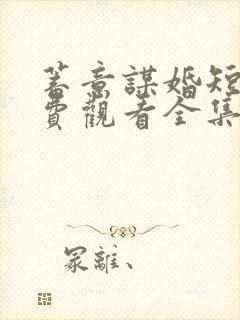 蓄意謀婚短
費觀看全集
冢離、